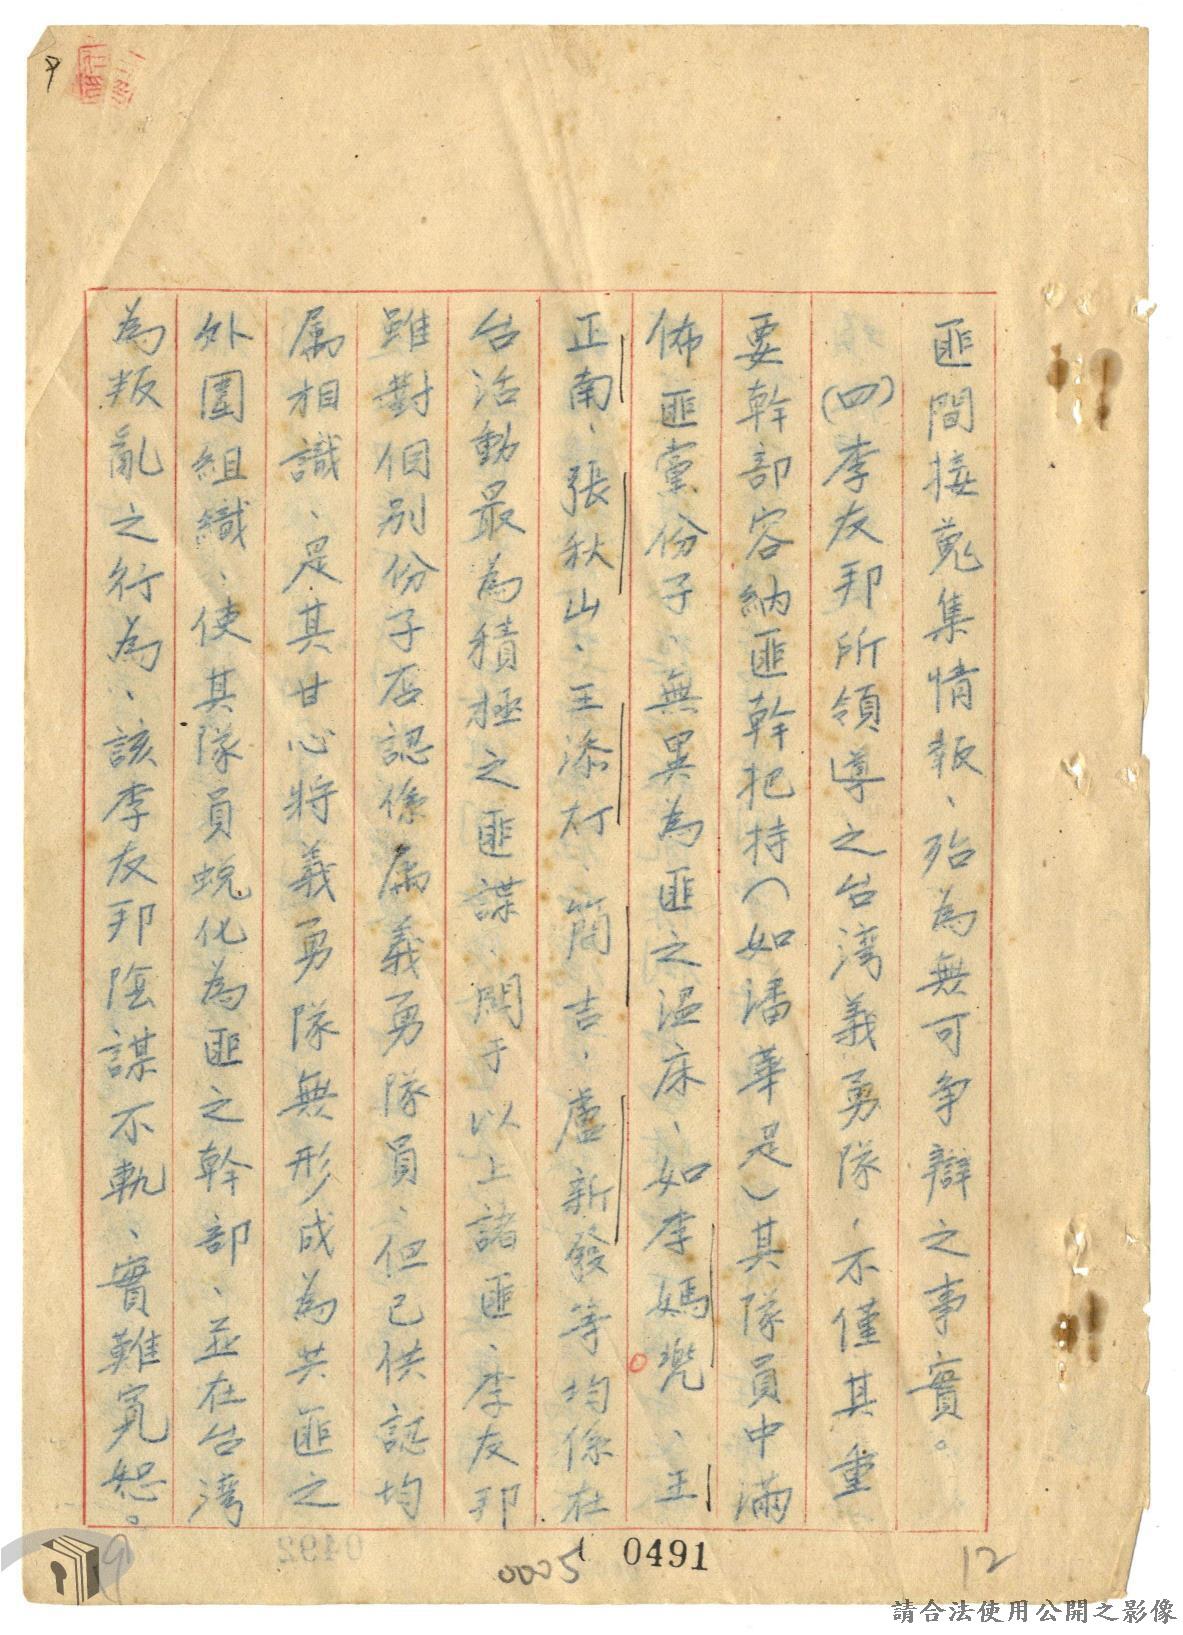 匪間接蒐集情報、殆為無可争辯之事實。
(四)李友邦所領導之台湾義勇隊，不僅其重
要幹部容納匪幹把持(如潘華是)其隊員中滿
佈匪黨份子、無異為匪之温床、如李媽兜、王
正南、張秋山、王添灯、簡吉、盧新發等均係在
台活動最為積極之匪諜、関于以上諸匪、李友邦
雖對個別份子否認係屬義勇隊員、但已供認均
屬相識、是其甘心將義勇隊無形成為共匪之
外圍組織、使其隊員蜕化為匪之幹部、並在台湾
為叛亂之行為、該李友邦陰謀不軌、實難寬恕。
0005
0491
12
請合法使用公開之影像